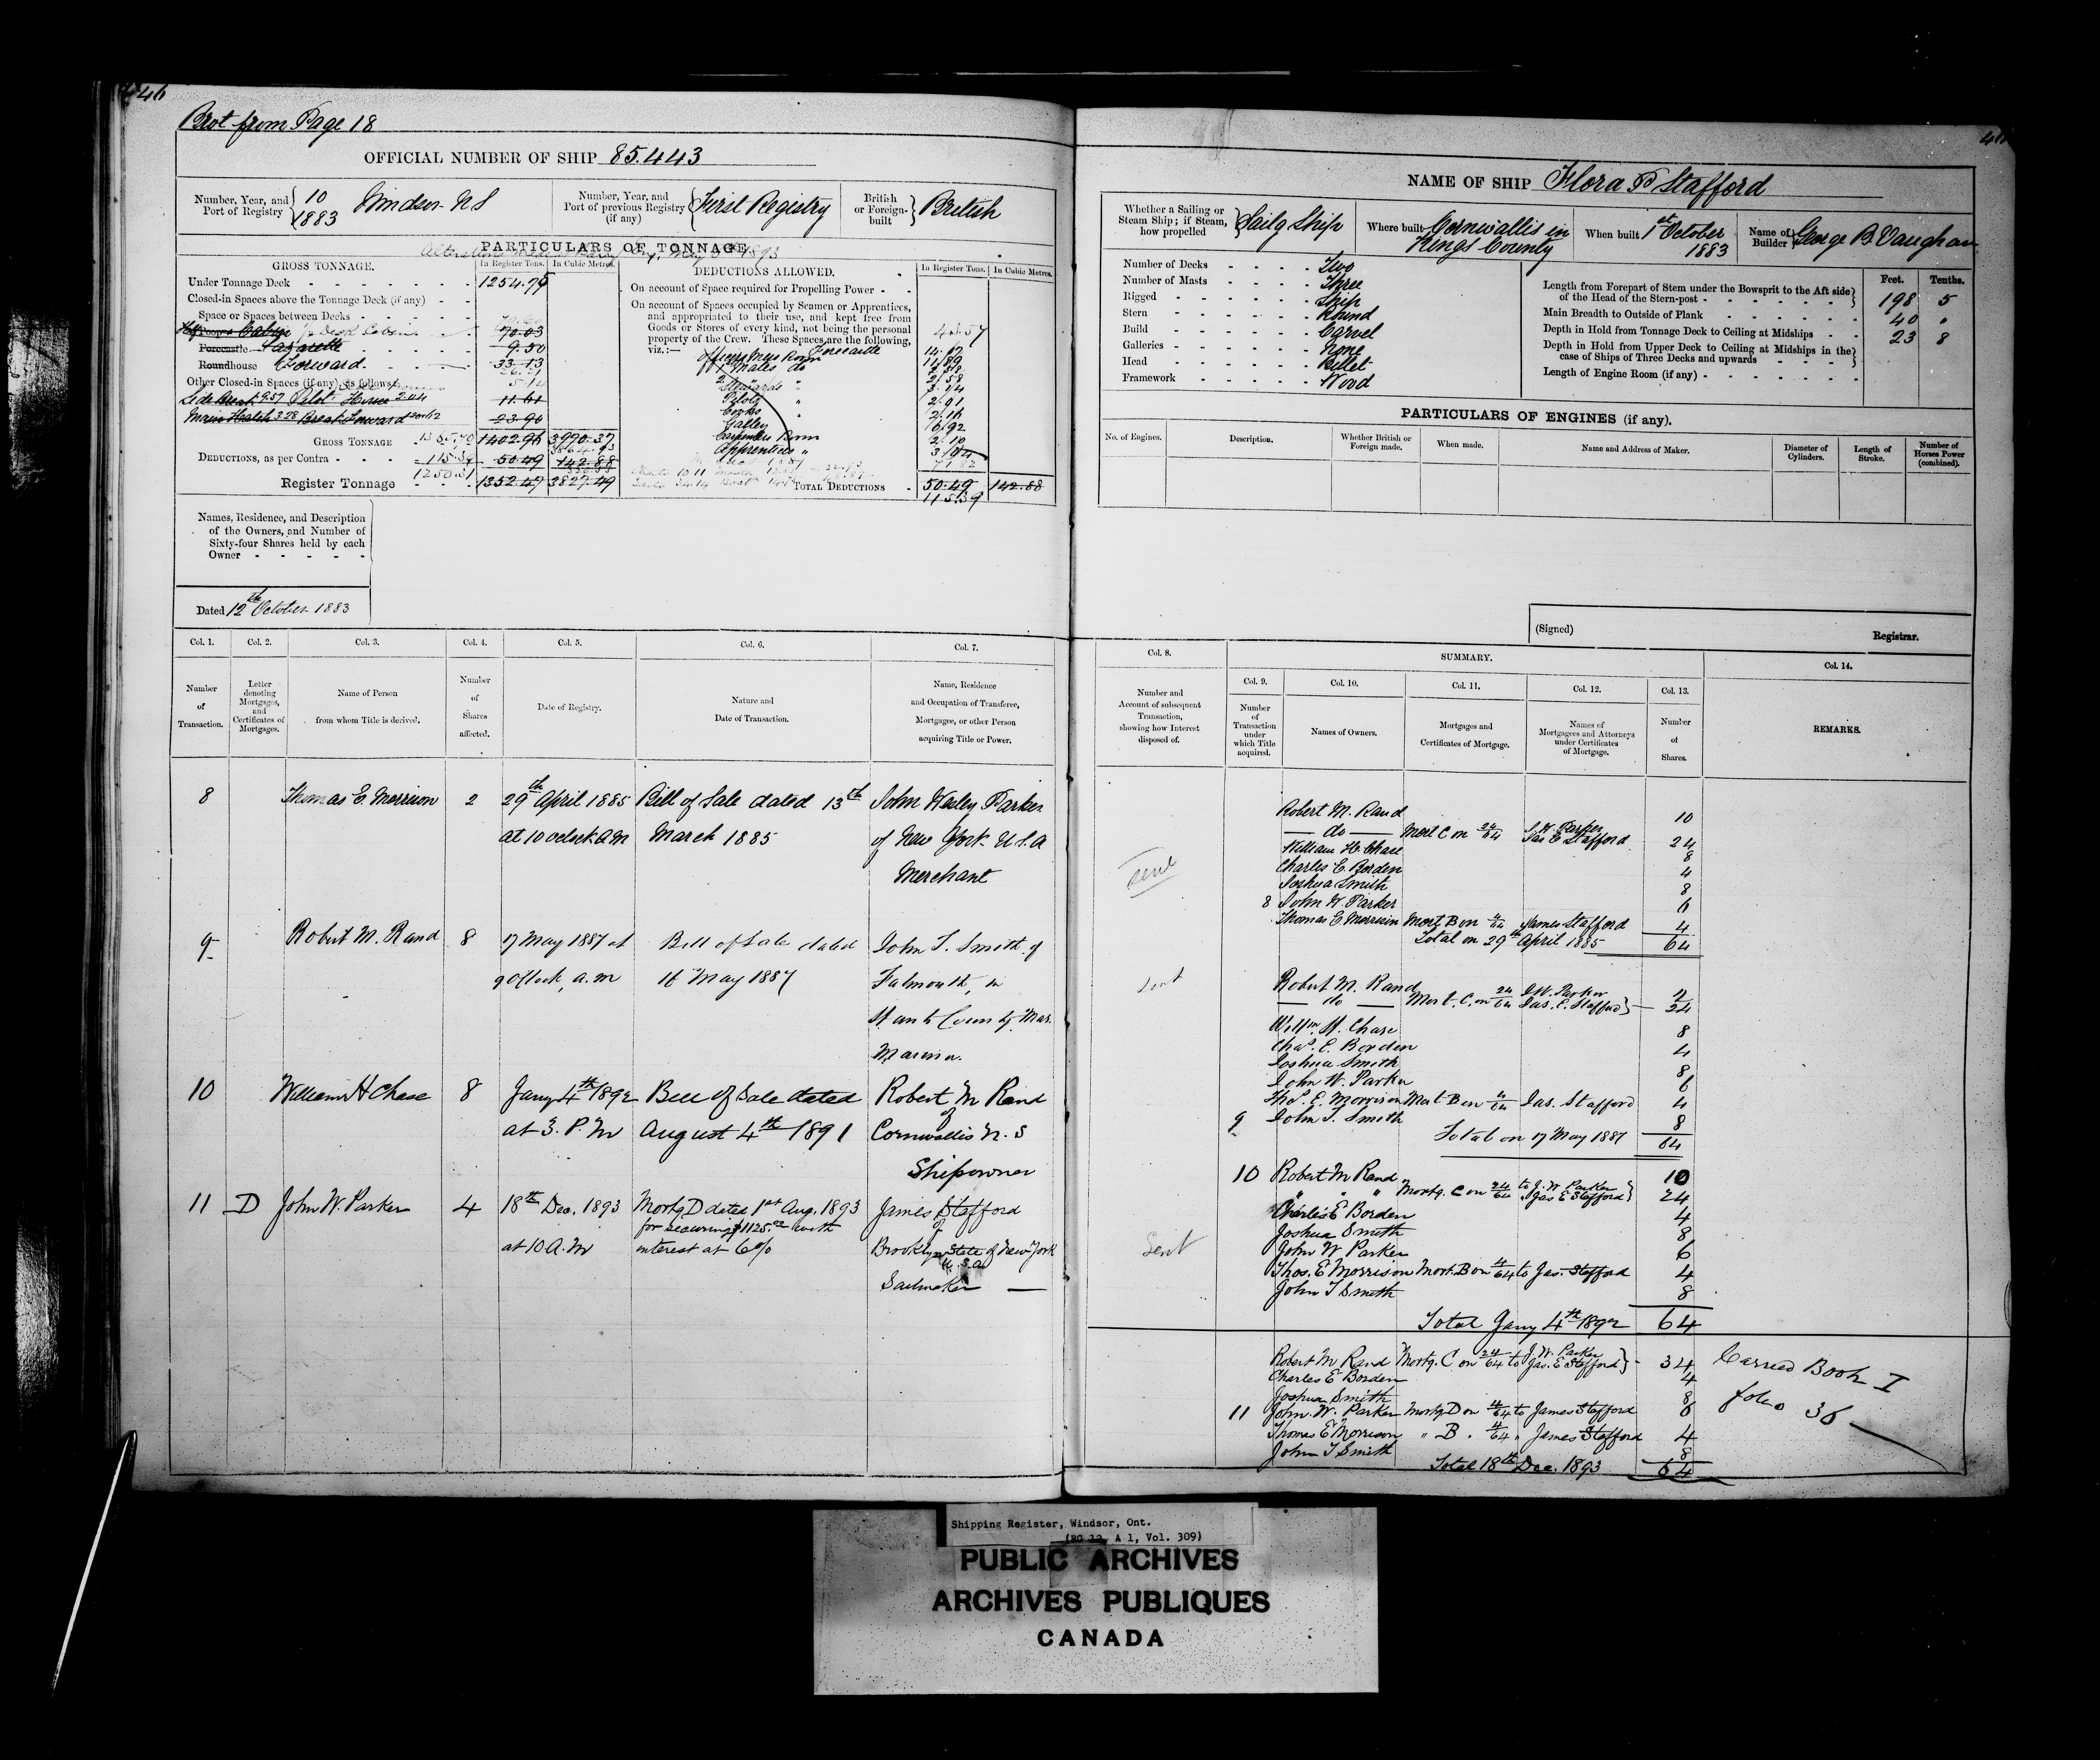 446
Brot from Page 18
OFFICIAL NUMBER OF SHIP 85.443
Number, Year, and Port of Registry 10 1883 Windsor NS
Number, Year, and Port of previous Registry (if any) First Registry
British or Foreign-built British
PARTICULARS OF TONNAGE
GROSS TONNAGE.
In Register Tons. In Cubic Metres.
Under Tonnage Deck 1254.79
Closed-in Spaces above the Tonnage Deck (if any)
Space or Spaces between Decks
Cabin 70.03
Forecastle Lazarette 9.50
Roundhouse Forward 33.13
Other Closed-in Spaces (if any), as follows:
Side Break 9.57 Pilot House 2.04 11.61
Main Hatch 3.28 Break Forward 20.62 23.90
GROSS TONNAGE 1365.70 1402.96 3970.37
DEDUCTIONS, as per Contra 115.39 50.49 142.88
Register Tonnage 1250.31 1352.47 3827.49
DEDUCTIONS ALLOWED.
In Register Tons. In Cubic Metres.
On account of Space required for Propelling Power
On account of Spaces occupied by Seamen or Apprentices, and appropriated to their use, and kept free from Goods or Stores of every kind, not being the personal property of the Crew. These Spaces are the following, viz.:—
43.57
Forecastle
Officers Mess Room
1 Mates do
2
Stewards "
Pilots "
Cooks "
Galley
Carpenters Room
Apprentices "
TOTAL DEDUCTIONS 50.49 142.88
115.39
Names, Residence, and Description of the Owners, and Number of Sixty-four Shares held by each Owner
Dated 12th October 1883
Col. 1. Col. 2. Col. 3. Col. 4. Col. 5. Col. 6. Col. 7.
Number of Transaction.
Letter denoting Mortgages, and Certificates of Mortgages.
Name of Person from whom Title is derived.
Number of Shares affected.
Date of Registry.
Nature and Date of Transaction.
Name, Residence and Occupation of Transferee, Mortgagee, or other Person acquiring Title or Power.
8 Thomas E. Morrison 2 29th April 1885 Bill of Sale dated 13th John Wesley Parker
at 10 oclock A.M March 1885 of New York U.S.A
Merchant
9 Robert M. Rand 8 17 May 1887 at Bill of Sale dated John T. Smith of
9 o'clock, a.m 16 May 1887 Falmouth, in
Hants County
Mariner.
10 William H Chase 8 Jany 4th 1892 Bill of Sale dated Robert M Rand
of
at 3. P.M August 4th 1891 Cornwallis N.S
Shipowner
11 D John W. Parker 4 18th Dec. 1893 Mortg D dated 1st Aug. 1893 James Stafford
for securing $1125.00 with of
at 10 A.M interest at 6% Brooklyn State of New York
U.S.A.
Sailmaker
NAME OF SHIP Flora P Stafford
Whether a Sailing or Steam Ship; if Steam, how propelled Sailg Ship
Where built Cornwallis in Kings County
When built 1st October 1883
Name of Builder George B. Vaughan
Number of Decks Two
Number of Masts Three
Rigged Ship
Stern Round
Build Carvel
Galleries None
Head Billet
Framework Wood
Feet. Tenths.
Length from Forepart of Stem under the Bowsprit to the Aft side of the Head of the Stern-post 198 5
Main Breadth to Outside of Plank 40 "
Depth in Hold from Tonnage Deck to Ceiling at Midships 23 8
Depth in Hold from Upper Deck to Ceiling at Midships in the case of Ships of Three Decks and upwards
Length of Engine Room (if any)
PARTICULARS OF ENGINES (if any).
No. of Engines.
Description.
Whether British or Foreign made.
When made.
Name and Address of Maker.
Diameter of Cylinders.
Length of Stroke.
Number of Horses Power (combined).
(Signed) Registrar.
Col. 8. SUMMARY. Col. 14.
Col. 9. Col. 10. Col. 11. Col. 12. Col. 13.
Number and Account of subsequent Transaction, showing how Interest disposed of.
Number of Transaction under which Title acquired.
Names of Owners.
Mortgages and Certificates of Mortgage.
Names of Mortgagees and Attorneys under Certificates of Mortgage.
Number of Shares.
REMARKS.
Robert M. Rand 10
— do — Mort C on 24/64 J. W. Parker Jas E Stafford 24
William H. Chase 8
Charles E. Borden 4
Joshua Smith 8
8 John W. Parker 6
Thomas E Morrison Mort B on 4/64 James Stafford 4
Total on 29th April 1885 64
sent
Robert M. Rand 2
— do — Mort. C. on 24/64 J. W. Parker Jas. E. Stafford 24
Willm. H. Chase 8
Chas. E. Borden 4
Joshua Smith 8
John W. Parker 6
Thos. E. Morrison Mort B on 4/64 Jas. Stafford 4
9 John T. Smith 8
Total on 17 May 1887 64
sent
10 Robert M Rand 10
" " " Mortg. C on 24/64 to J. W. Parker Jas E Stafford 24
Charles E Borden 4
Joshua Smith 8
John W Parker 6
Thos. E Morrison Mort. B on 4/64 to Jas. Stafford 4
John T Smith 8
Total Jany 4th 1892 64
Sent
Robert M Rand Mortg. C on 24/64 to J. W. Parker Jas. E Stafford 34
Charles E Borden 4
Joshua Smith 8
11 John W. Parker Mortg D on 4/64 to James Stafford 6
Thomas E Morrison " B. 4/64 " James Stafford 4
John T Smith 8
Total 18th Dec. 1893 64
Carried Book I
folio 36
Shipping Register, Windsor, Ont.
(RG 12, A 1, Vol. 309)
PUBLIC ARCHIVES
ARCHIVES PUBLIQUES
CANADA